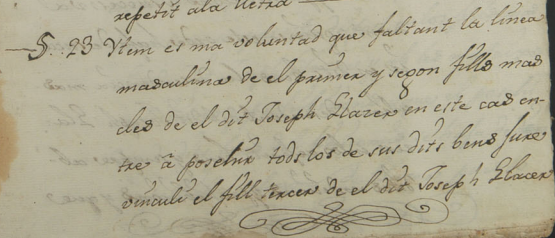 repetit ala lletra
§. 23 Ytem es ma voluntad que faltant la linea
masculina de el primer y segon fills mas
cles de el dit Joseph Llacer en este cas en-
tre â posehir tods los de sus dits bens sure
vinculi el fill tercer de el dit Joseph Llacer